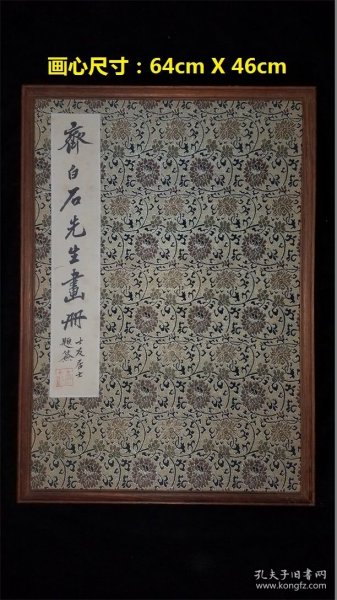 画心尺寸：64cm X 46cm
齊白石先生畫册
十友居士
題簽
孔夫子旧书网
www.kongfz.com